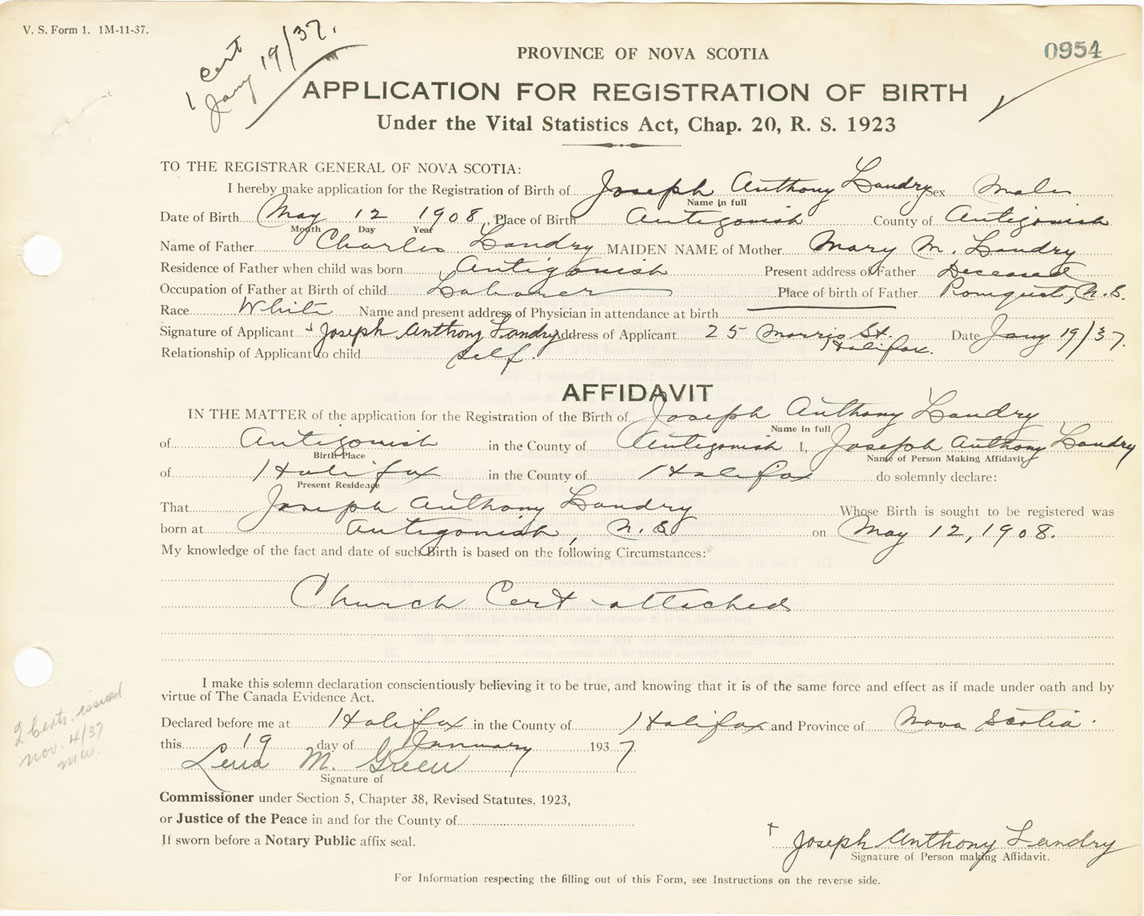 V. S. Form 1. 1M-11-37.
1 Cert
Jany 19/37.
PROVINCE OF NOVA SCOTIA
0954
APPLICATION FOR REGISTRATION OF BIRTH
Under the Vital Statistics Act, Chap. 20, R. S. 1923
TO THE REGISTRAR GENERAL OF NOVA SCOTIA:
I hereby make application for the Registration of Birth of Joseph Anthony Landry Sex Male
Name in full
Date of Birth May 12 1908, Place of Birth Antigonish County of Antigonish
Month Day Year
Name of Father Charles Landry MAIDEN NAME of Mother Mary M. Landry
Residence of Father when child was born Antigonish Present address of Father Deceased
Occupation of Father at Birth of child Labourer Place of birth of Father Pomquet, N.S.
Race White Name and present address of Physician in attendance at birth
Signature of Applicant Joseph Anthony Landry Address of Applicant 25 Morris St. Halifax. Date Jany 19/37.
Relationship of Applicant to child self.
AFFIDAVIT
IN THE MATTER of the application for the Registration of the Birth of Joseph Anthony Landry
Name in full
of Antigonish in the County of Antigonish I, Joseph Anthony Landry
Birth Place Name of Person Making Affidavit
of Halifax in the County of Halifax do solemnly declare:
Present Residence
That Joseph Anthony Landry Whose Birth is sought to be registered was
born at Antigonish, N.S on May 12, 1908.
My knowledge of the fact and date of such Birth is based on the following Circumstances:
Church Cert attached
I make this solemn declaration conscientiously believing it to be true, and knowing that it is of the same force and effect as if made under oath and by
virtue of The Canada Evidence Act.
Declared before me at Halifax in the County of Halifax and Province of Nova Scotia.
this 19 day of January 1937
Lena M. Green
Signature of
2 Certs. issued
Nov. 4/37
MW.
Commissioner under Section 5, Chapter 38, Revised Statutes, 1923,
or Justice of the Peace in and for the County of
If sworn before a Notary Public affix seal.
Joseph Anthony Landry
Signature of Person making Affidavit.
For Information respecting the filling out of this Form, see Instructions on the reverse side.